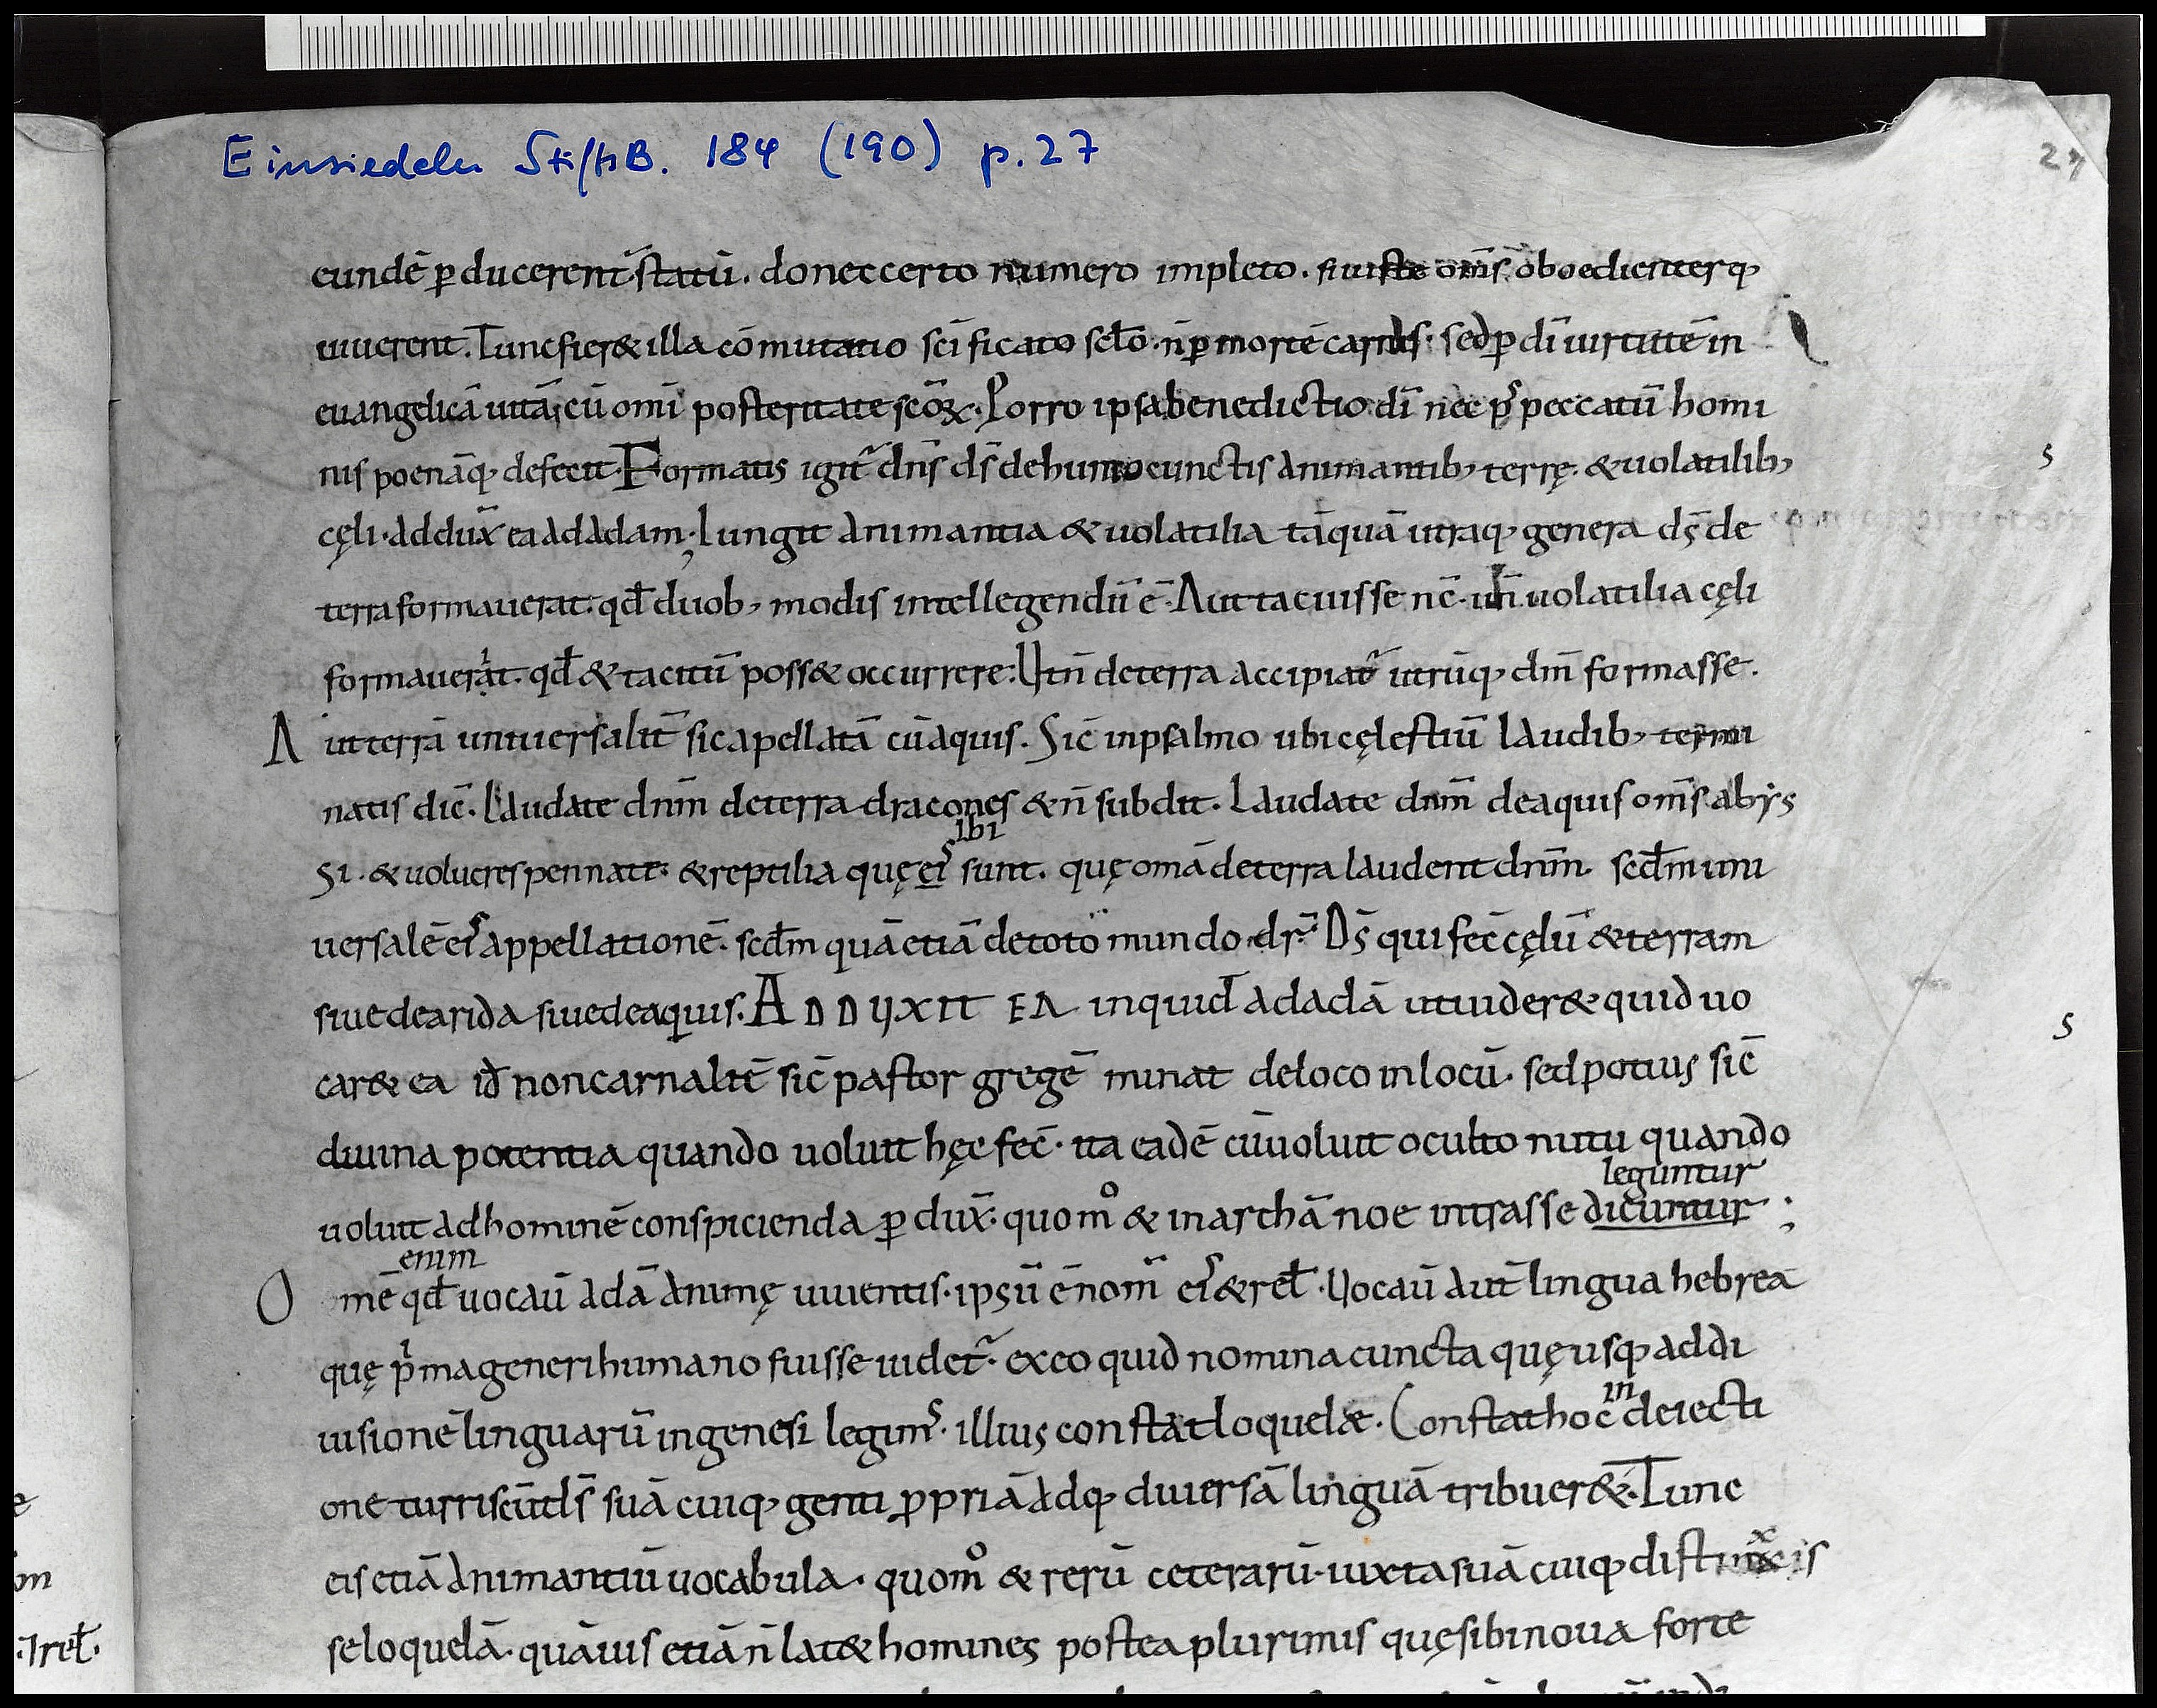 Einsiedeln StiftsB. 184 (190) p. 27
27
eundē ꝑducerent᷑ statū. donec certo numero impleto. siuiste om̄s oboedienterq;
uiuerent. Tunc fier& illa cōmutatio sc̄ificato sclō. n̄ ꝑ mortē carnis. sed ꝑ dī uirtutē in
euangelicā uitā cū omī posteritate scōꝝ. Porro ipsa benedictio dī nec pꝰ peccatū homi
nis poenāq; defecit. Formatis igit᷑ dn̄s ds̄ de humo cunctis animantib; terrę. & uolatilib;
cęli. addux̄ ea ad adam. Iungit animantia & uolatilia tāquā utraq; genera ds̄ de
terra formauerat. qđ duob; modis intellegendū ē. Aut tacuisse nc̄. un̄ uolatilia cęli
formauerat. qđ & tacitū poss& occurrere. Ut n̄ de terra accipiat᷑ utrūq; dn̄m formasse.
A ut terrā uniuersalit̄ sic apellatā cū aquis. Sic̄ in psalmo ubi cęlestiū laudib; termi
natis dic̄. Laudate dn̄m de terra dracones & n̄ subdit. Laudate dn̄m de aquis om̄s abys
ibi
si. & uolucres pennate. & reptilia quę eiꝰ sunt. quę omā de terra laudent dn̄m. scđm uni
uersalē eiꝰ appellationē. scđm quā etiā de toto mundo dr᷑. Ds̄ qui fec̄ cęlū & terram
siue de arida siue de aquis. ADDUXIT EA inquid ad adā ut uider& quid uo
car& ea id non carnalit̄ sic̄ pastor gregē minat de loco in locū. sed potius sic̄
diuina potentia quando uoluit hęc fec̄. ita eadē cū uoluit oculto nutu quando
leguntur
uoluit ad hominē conspicienda ꝑdux̄. quom̊ & in archā noe intrasse dicuntur;
enim
O mē qđ uocaū adā animę uiuentis. ipsū ē nom̄ eiꝰ & rel̄. Uocaū aut̄ lingua hebrea
quę pͥma generi humano fuisse uidet᷑. ex eo quid nomina cuncta quę usq; ad di
uisionē linguarū in genesi legimꝰ. illius constat loquelæ. Constat hoc
in
deiecti
one turris cū ds̄ suā cuiq; genti ꝓpriā adq; diuersā linguā tribuer&. Tunc
eis etiā animantiū uocabula. quom̊ & rerū ceterarū. iuxta suā cuiq; distinxis
se loquelā. quāuis etiā n̄ lat& homines postea plurimis quę sibi noua forte